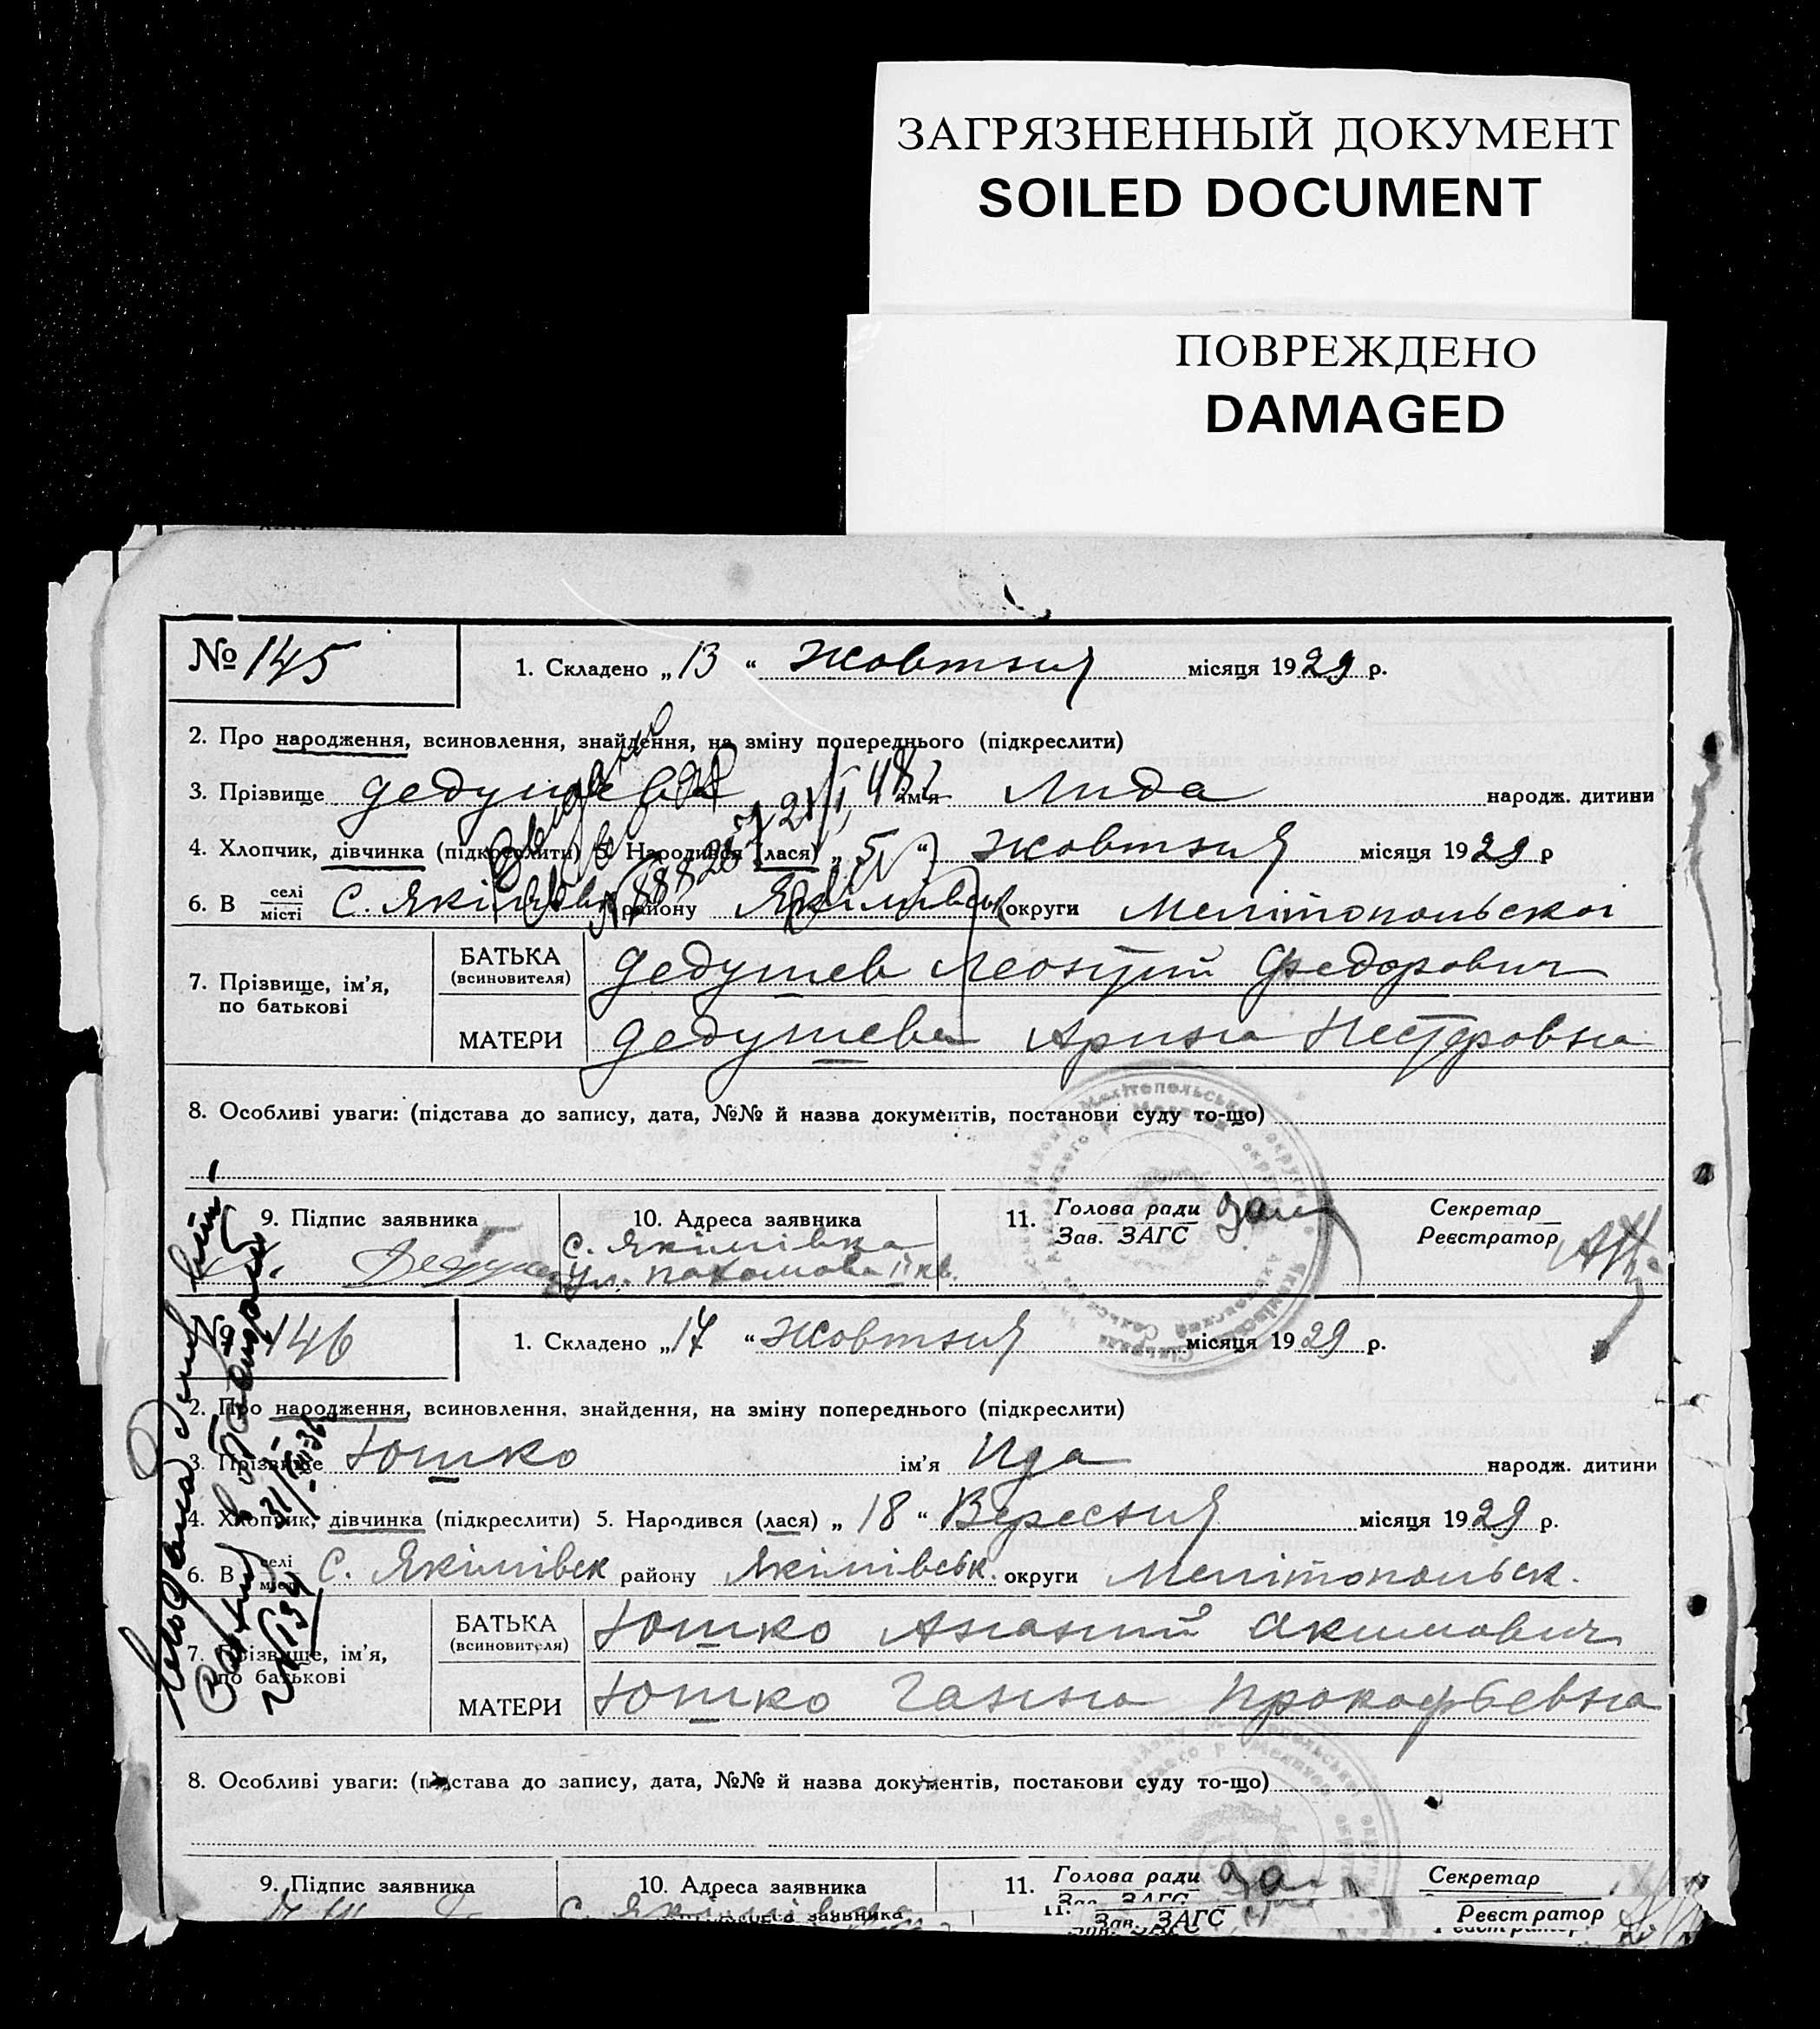 ЗАГРЯЗНЕННЫЙ ДОКУМЕНТ
SOILED DOCUMENT
ПОВРЕЖДЕНО
DAMAGED
№ 145
1. Складено „13“ Жовтня місяця 1929 р.
2. Про народження, всиновлення, знайдення, на зміну попереднього (підкреслити)
3. Прізвище Дедушева ім'я Лида народж. дитини
4. Хлопчик, дівчинка (підкреслити) 5. Народився (лася) „5“ Жовтня місяця 1929 р
6. В селі місті С. Якімівка району Якімівськ округи Мелітопольскоі
7. Прізвище, ім'я, по батькові
БАТЬКА (всиновителя) Дедушев Леонтий Федорович
МАТЕРИ Дедушева Арина Нестеровна
8. Особливі уваги: (підстава до запису, дата, №№ й назва документів, постанови суду то-що)
9. Підпис заявника
10. Адреса заявника
С. Якімівка
11. Голова ради
Зав. ЗАГС
Секретар
Реєстратор
№ 146
1. Складено „17“ Жовтня місяця 1929 р.
2. Про народження, всиновлення, знайдення, на зміну попереднього (підкреслити)
3. Прізвище Юшко ім'я Ида народж. дитини
4. Хлопчик, дівчинка (підкреслити) 5. Народився (лася) „18“ Вересня місяця 1929 р.
6. В селі місті С. Якімівск району Якімівськ. округи Мелітопольск.
7. Прізвище, ім'я, по батькові
БАТЬКА (всиновителя) Юшко Ананий Акимович
МАТЕРИ Юшко Ганна Прокофьевна
8. Особливі уваги: (підстава до запису, дата, №№ й назва документів, постанови суду то-що)
9. Підпис заявника
10. Адреса заявника
С. Якімівка
11. Голова ради
Зав. ЗАГС
Секретар
Реєстратор